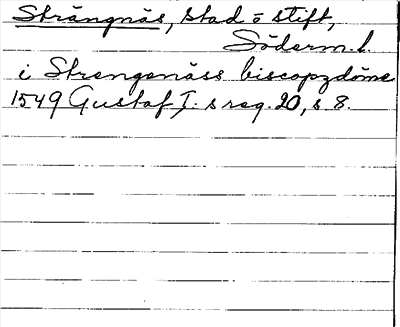 Strängnäs, stad o stift,
Söderm.l.
i Strengenäss biscopzdöme
1549 Gustaf I:s reg. 20, s 8.